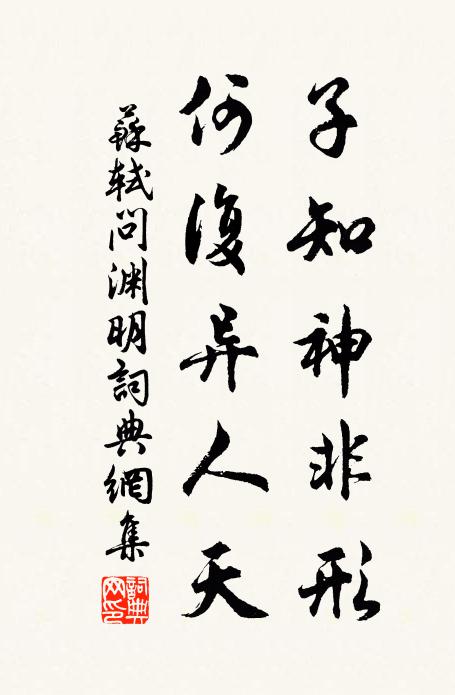 子知神非形
何復异人天
蘇軾問渊明詞典網集
詞典
网印